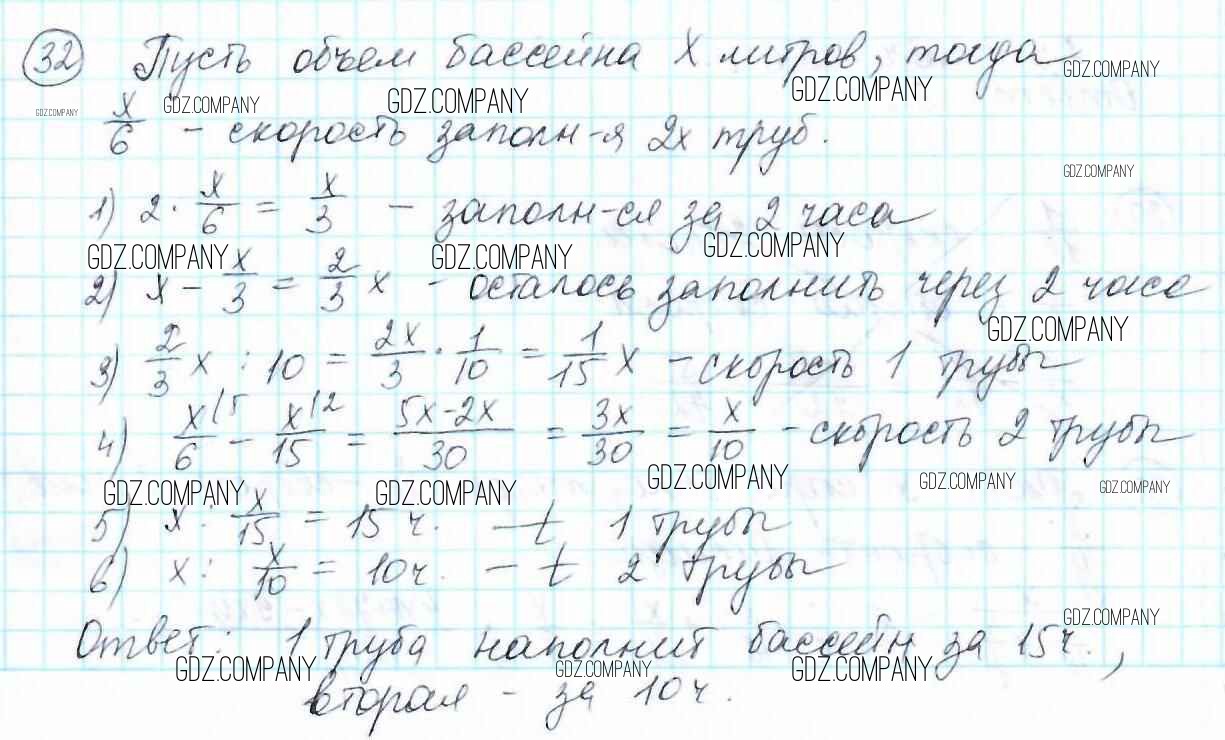 32 Пусть объем бассейна x литров, тогда
GDZ.COMPANY
GDZ.COMPANY GDZ.COMPANY GDZ.COMPANY GDZ.COMPANY
x/6 - скорость заполн-я 2х труб.
GDZ.COMPANY
1) 2 · x/6 = x/3 - заполн-ся за 2 часа
GDZ.COMPANY GDZ.COMPANY GDZ.COMPANY
2) x - x/3 = 2/3 x - осталось заполнить через 2 часа
GDZ.COMPANY
3) 2/3 x : 10 = 2x/3 · 1/10 = 1/15 x - скорость 1 трубы
4) x/6 |5 - x/15 |2 = 5x-2x/30 = 3x/30 = x/10 - скорость 2 трубы
GDZ.COMPANY GDZ.COMPANY GDZ.COMPANY GDZ.COMPANY GDZ.COMPANY
5) x : x/15 = 15 ч. - t 1 трубы
6) x : x/10 = 10ч. - t 2 трубы
GDZ.COMPANY
Ответ: 1 труба наполнит бассейн за 15ч.,
GDZ.COMPANY GDZ.COMPANY GDZ.COMPANY
вторая - за 10ч.